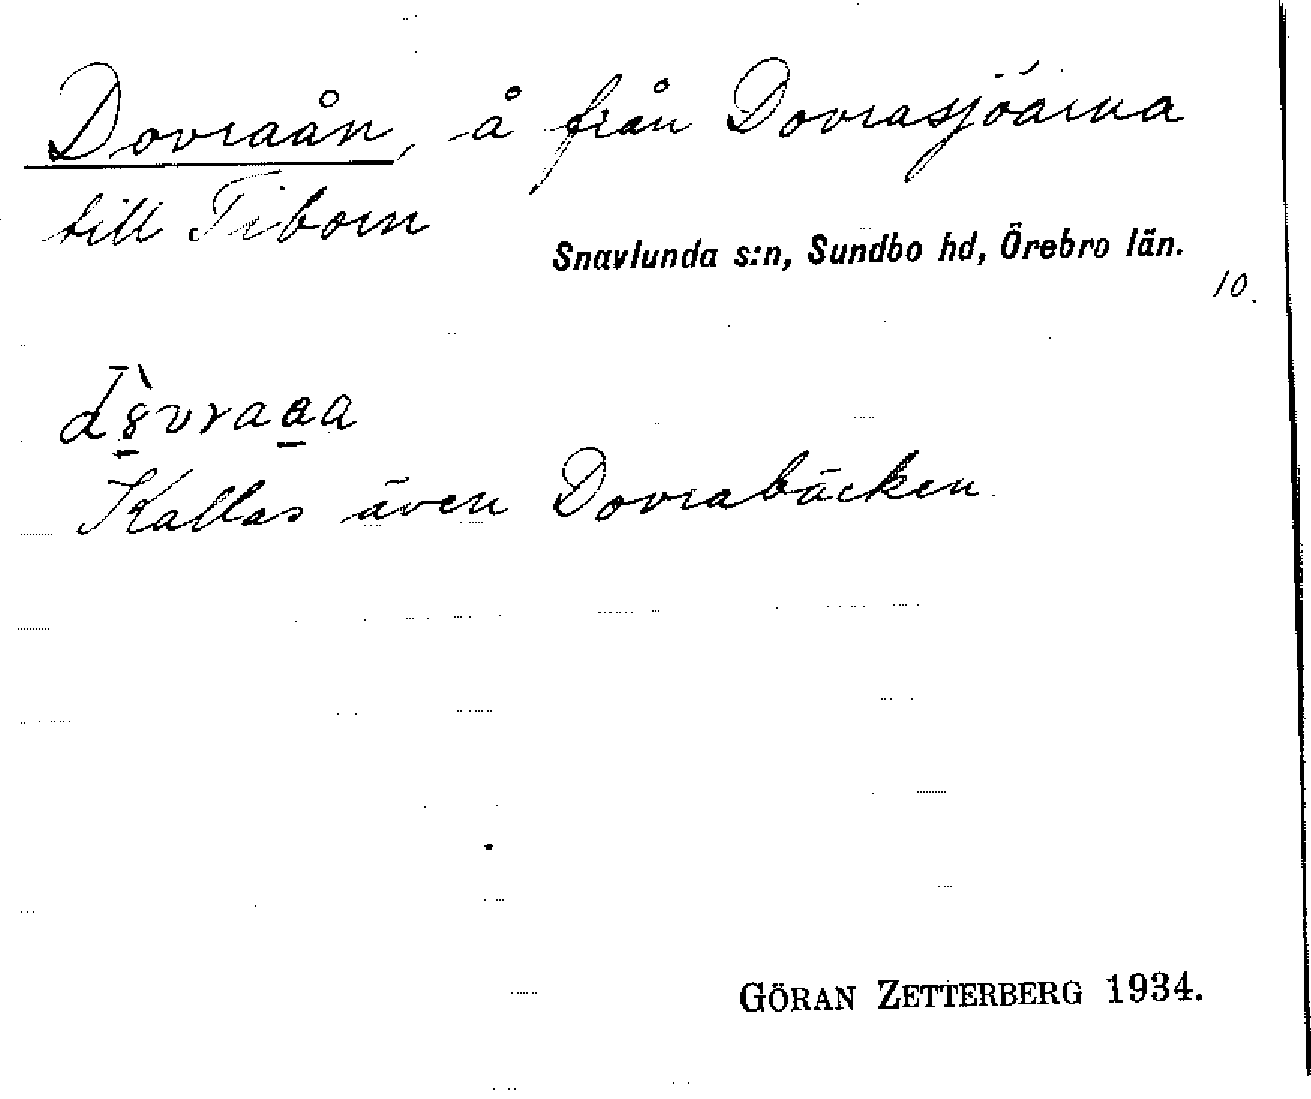 Dovraån, å från Dovrasjöarna
till Tiborn
Snavlunda s:n, Sundbo hd, Örebro län.
10.
Kallas även Dovrabäcken
GÖRAN ZETTERBERG 1934.